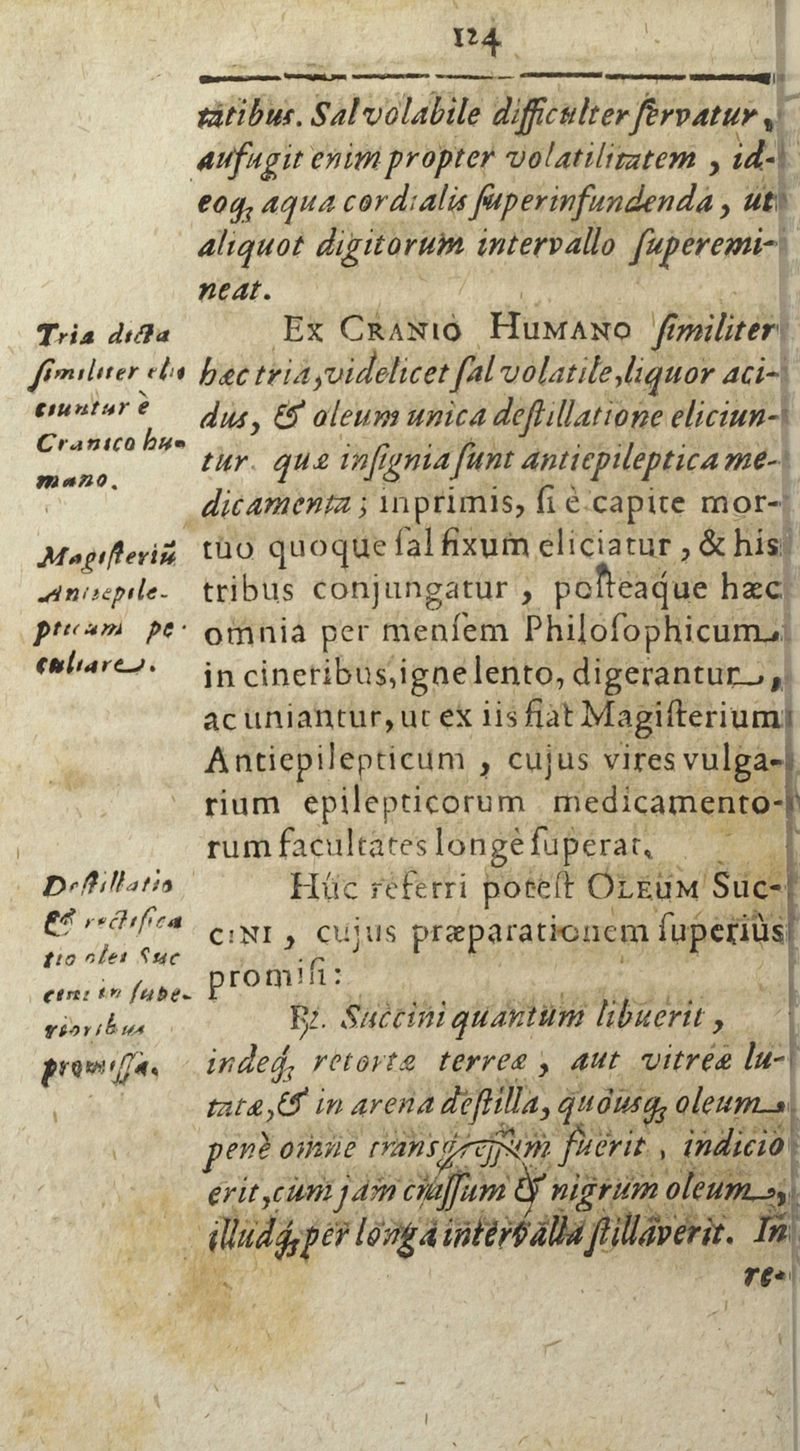 124
tatibus. Sal volabile difficulter ſervatur,
aufugit enim propter volatilitatem , id-
eoq; aqua cordialis ſuperinfundenda , ut
aliquot digitorum intervallo ſuperemi-
neat.
Tria dicta
ſimiliter eli-
ciuntur è
Cranico hu-
mano.
Ex Cranio Humano ſimiliter
hæc tria,videlicet ſal volatile,liquor aci-
dus, & oleum unica deſtillatione eliciun-
tur. quæ inſignia ſunt antiepileptica me-
dicamenta; inprimis, ſi è capite mor-
Magiſteriū
Antiepile-
pticum pe-
culiare.
tuo quoque ſal fixum eliciatur , & his
tribus conjungatur , poſteaque hæc
omnia per menſem Philoſophicum
in cineribus,igne lento, digerantur,
ac uniantur, ut ex iis fiat Magiſterium
Antiepilepticum , cujus vires vulga-
rium epilepticorum medicamento-
rum facultates longè ſuperat.
Deſtillatio
& rectifica
tio olei Suc
cini in ſupe-
rioribus
promiſſa.
Hùc referri poteſt Oleum Suc-
cini , cujus præparationem ſuperiùs
promiſi:
℞. Succini quantum libuerit ,
indeq; retortæ terreæ , aut vitreæ lu-
tatæ,& in arena deſtilla, quousq; oleum
penè omne transgreſſum fuerit , indicio
erit,cum jam craſſum & nigrum oleum,
illudq; per longa intervalla ſtillaverit. In
re-